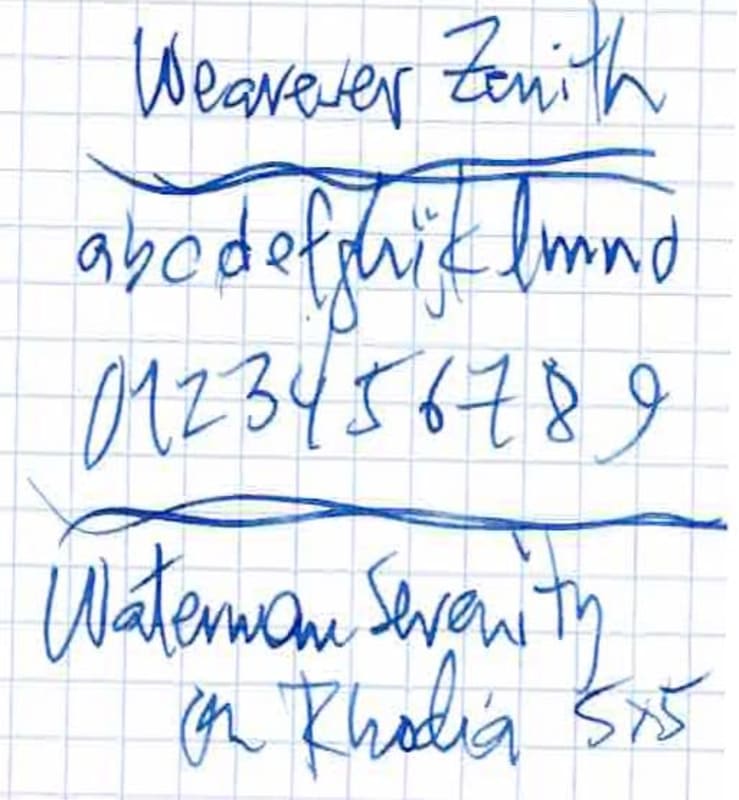 Wearever Zenith
abcdefghijklmno
0123456789
Waterman Serenity
on Rhodia 5x5